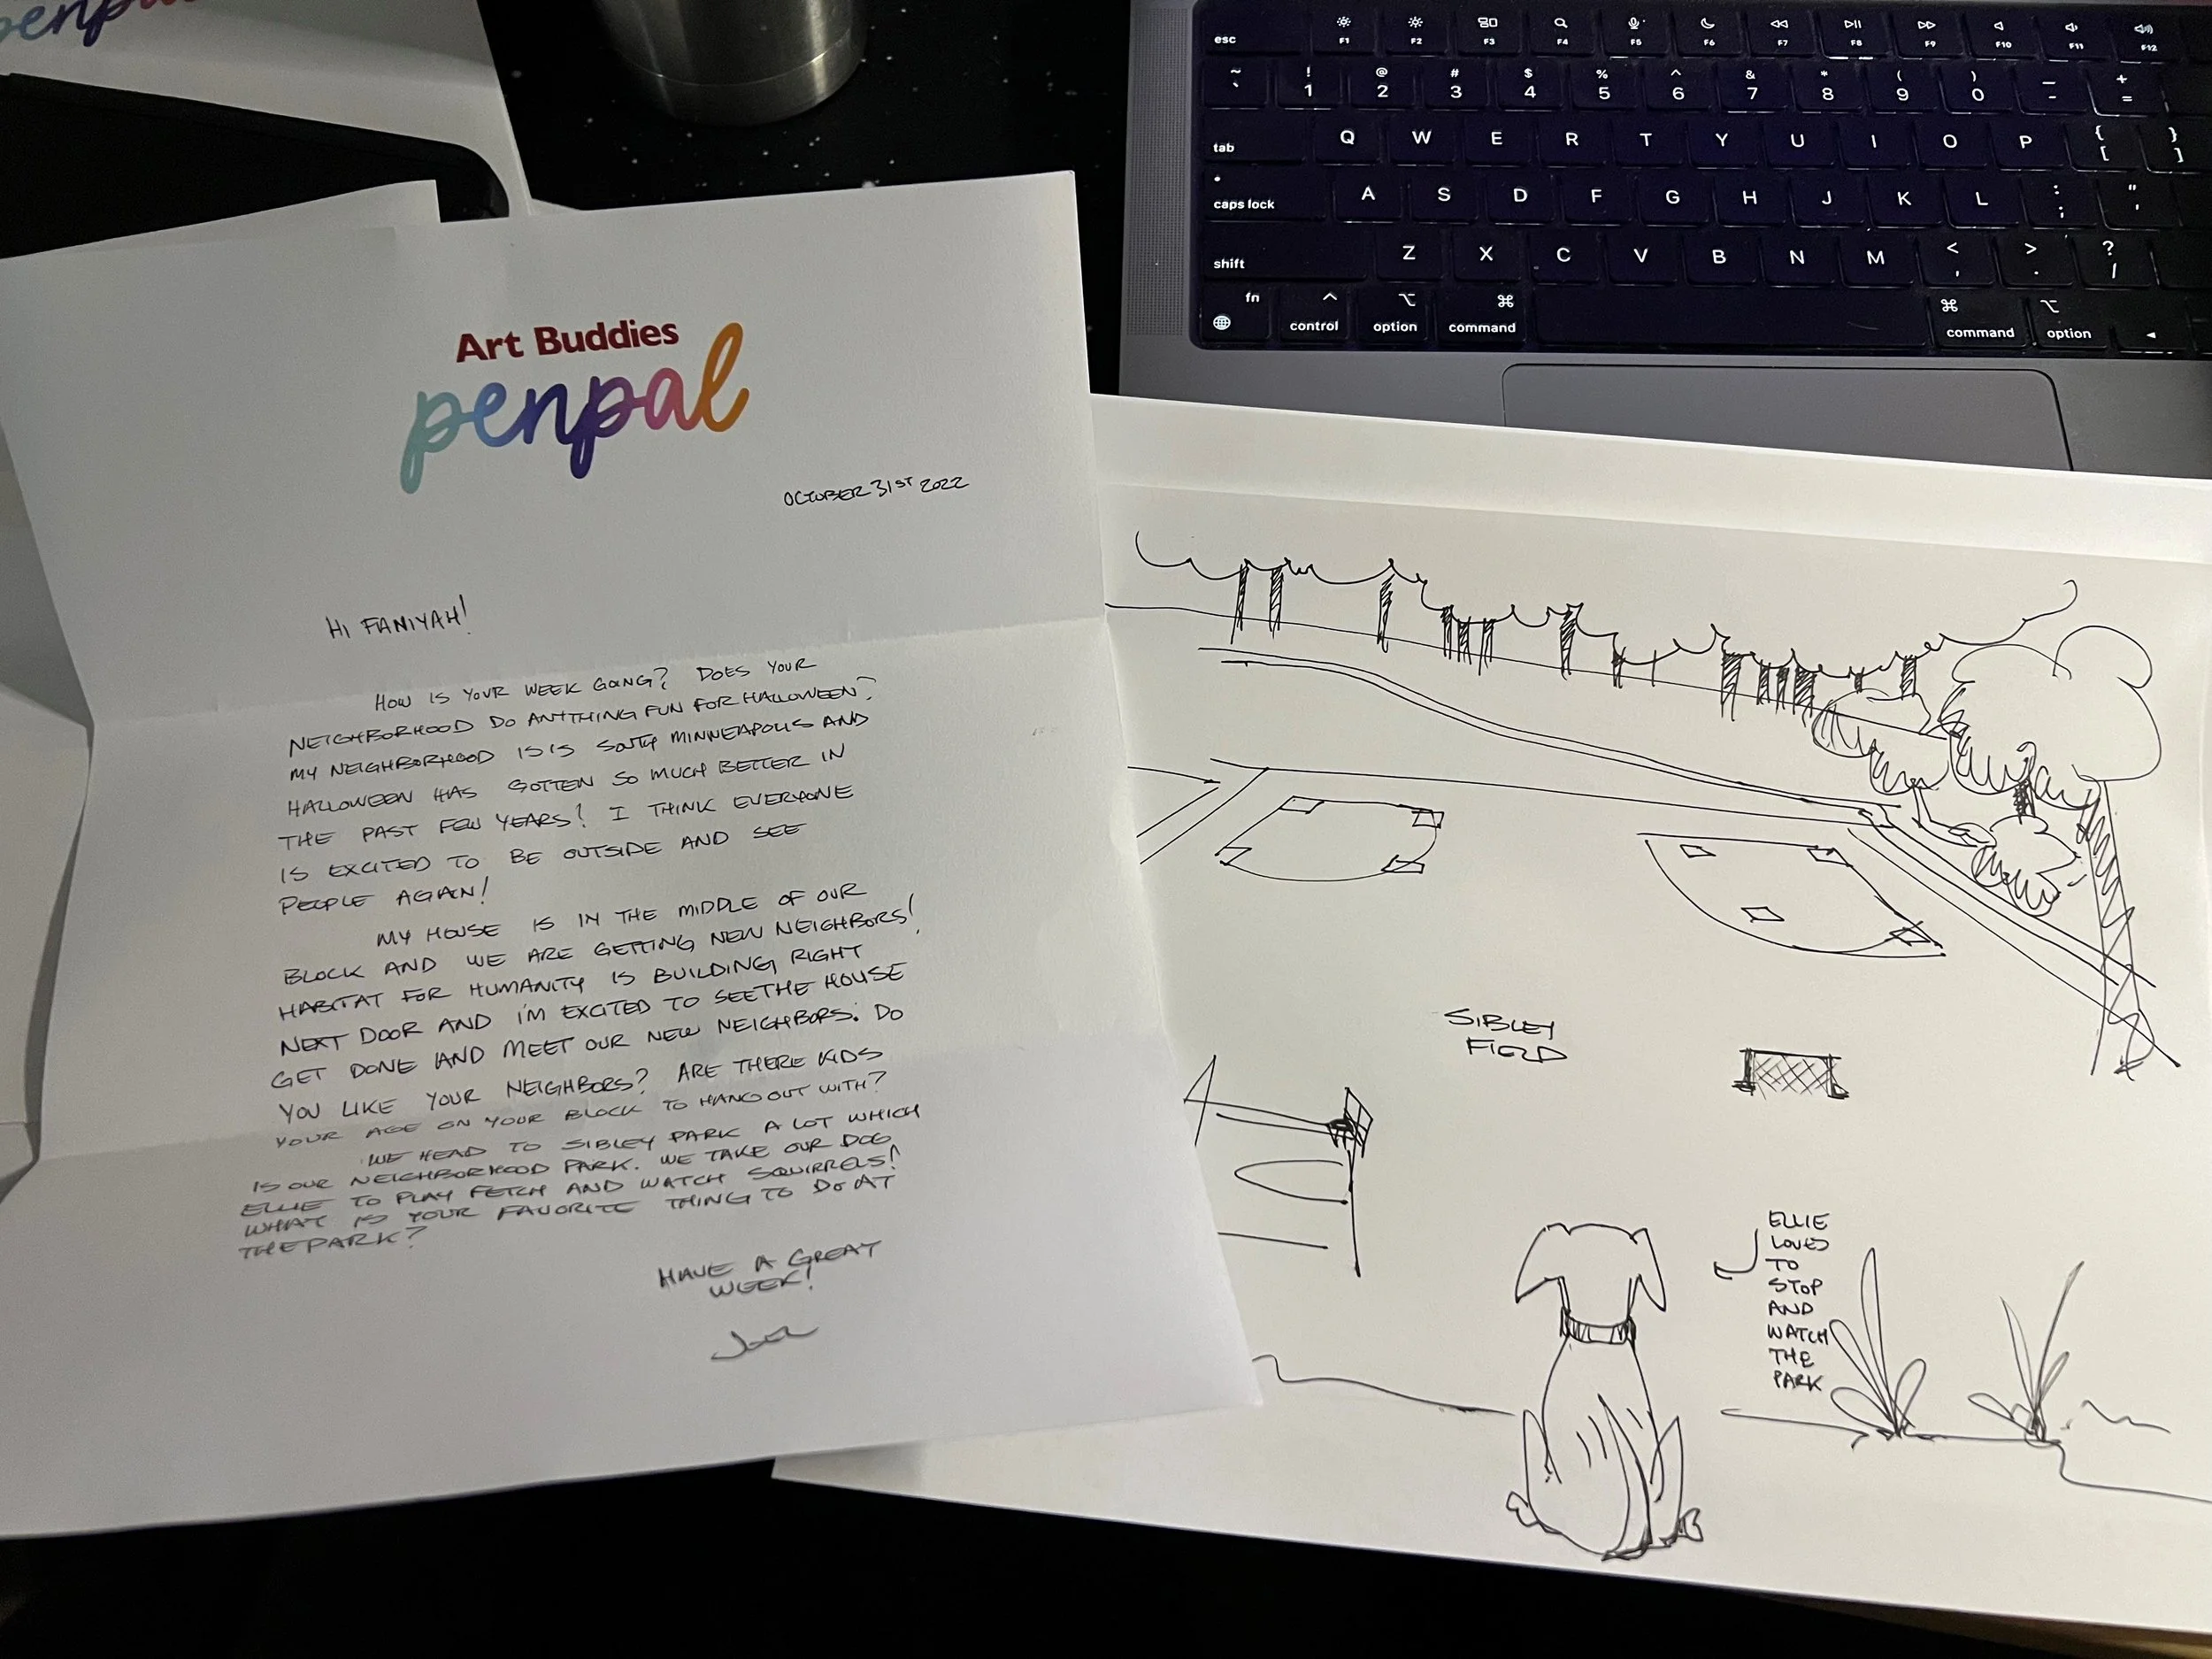 penpal
Art Buddies
penpal
OCTOBER 31ST 2022
HI FANIYAH!
HOW IS YOUR WEEK GOING? DOES YOUR
NEIGHBORHOOD DO ANYTHING FUN FOR HALLOWEEN?
MY NEIGHBORHOOD IS IS SOUTH MINNEAPOLIS AND
HALLOWEEN HAS GOTTEN SO MUCH BETTER IN
THE PAST FEW YEARS! I THINK EVERYONE
IS EXCITED TO BE OUTSIDE AND SEE
PEOPLE AGAIN!
MY HOUSE IS IN THE MIDDLE OF OUR
BLOCK AND WE ARE GETTING NEW NEIGHBORS!
HABITAT FOR HUMANITY IS BUILDING RIGHT
NEXT DOOR AND I'M EXCITED TO SEE THE HOUSE
GET DONE AND MEET OUR NEW NEIGHBORS. DO
YOU LIKE YOUR NEIGHBORS? ARE THERE KIDS
YOUR AGE ON YOUR BLOCK TO HANG OUT WITH?
WE HEAD TO SIBLEY PARK A LOT WHICH
IS OUR NEIGHBORHOOD PARK. WE TAKE OUR DOG
ELLIE TO PLAY FETCH AND WATCH SQUIRRELS!
WHAT IS YOUR FAVORITE THING TO DO AT
THE PARK?
HAVE A GREAT
WEEK!
SIBLEY
FIELD
ELLIE
LOVES
TO
STOP
AND
WATCH
THE
PARK
esc F1 F2 F3 F4 F5 F6 F7 F8 F9 F10 F11 F12
~ ! @ # $ % ^ & * ( ) _ +
` 1 2 3 4 5 6 7 8 9 0 - =
tab Q W E R T Y U I O P { [ } ]
caps lock A S D F G H J K L : ; " '
shift Z X C V B N M < , > . ? /
fn control option command command option